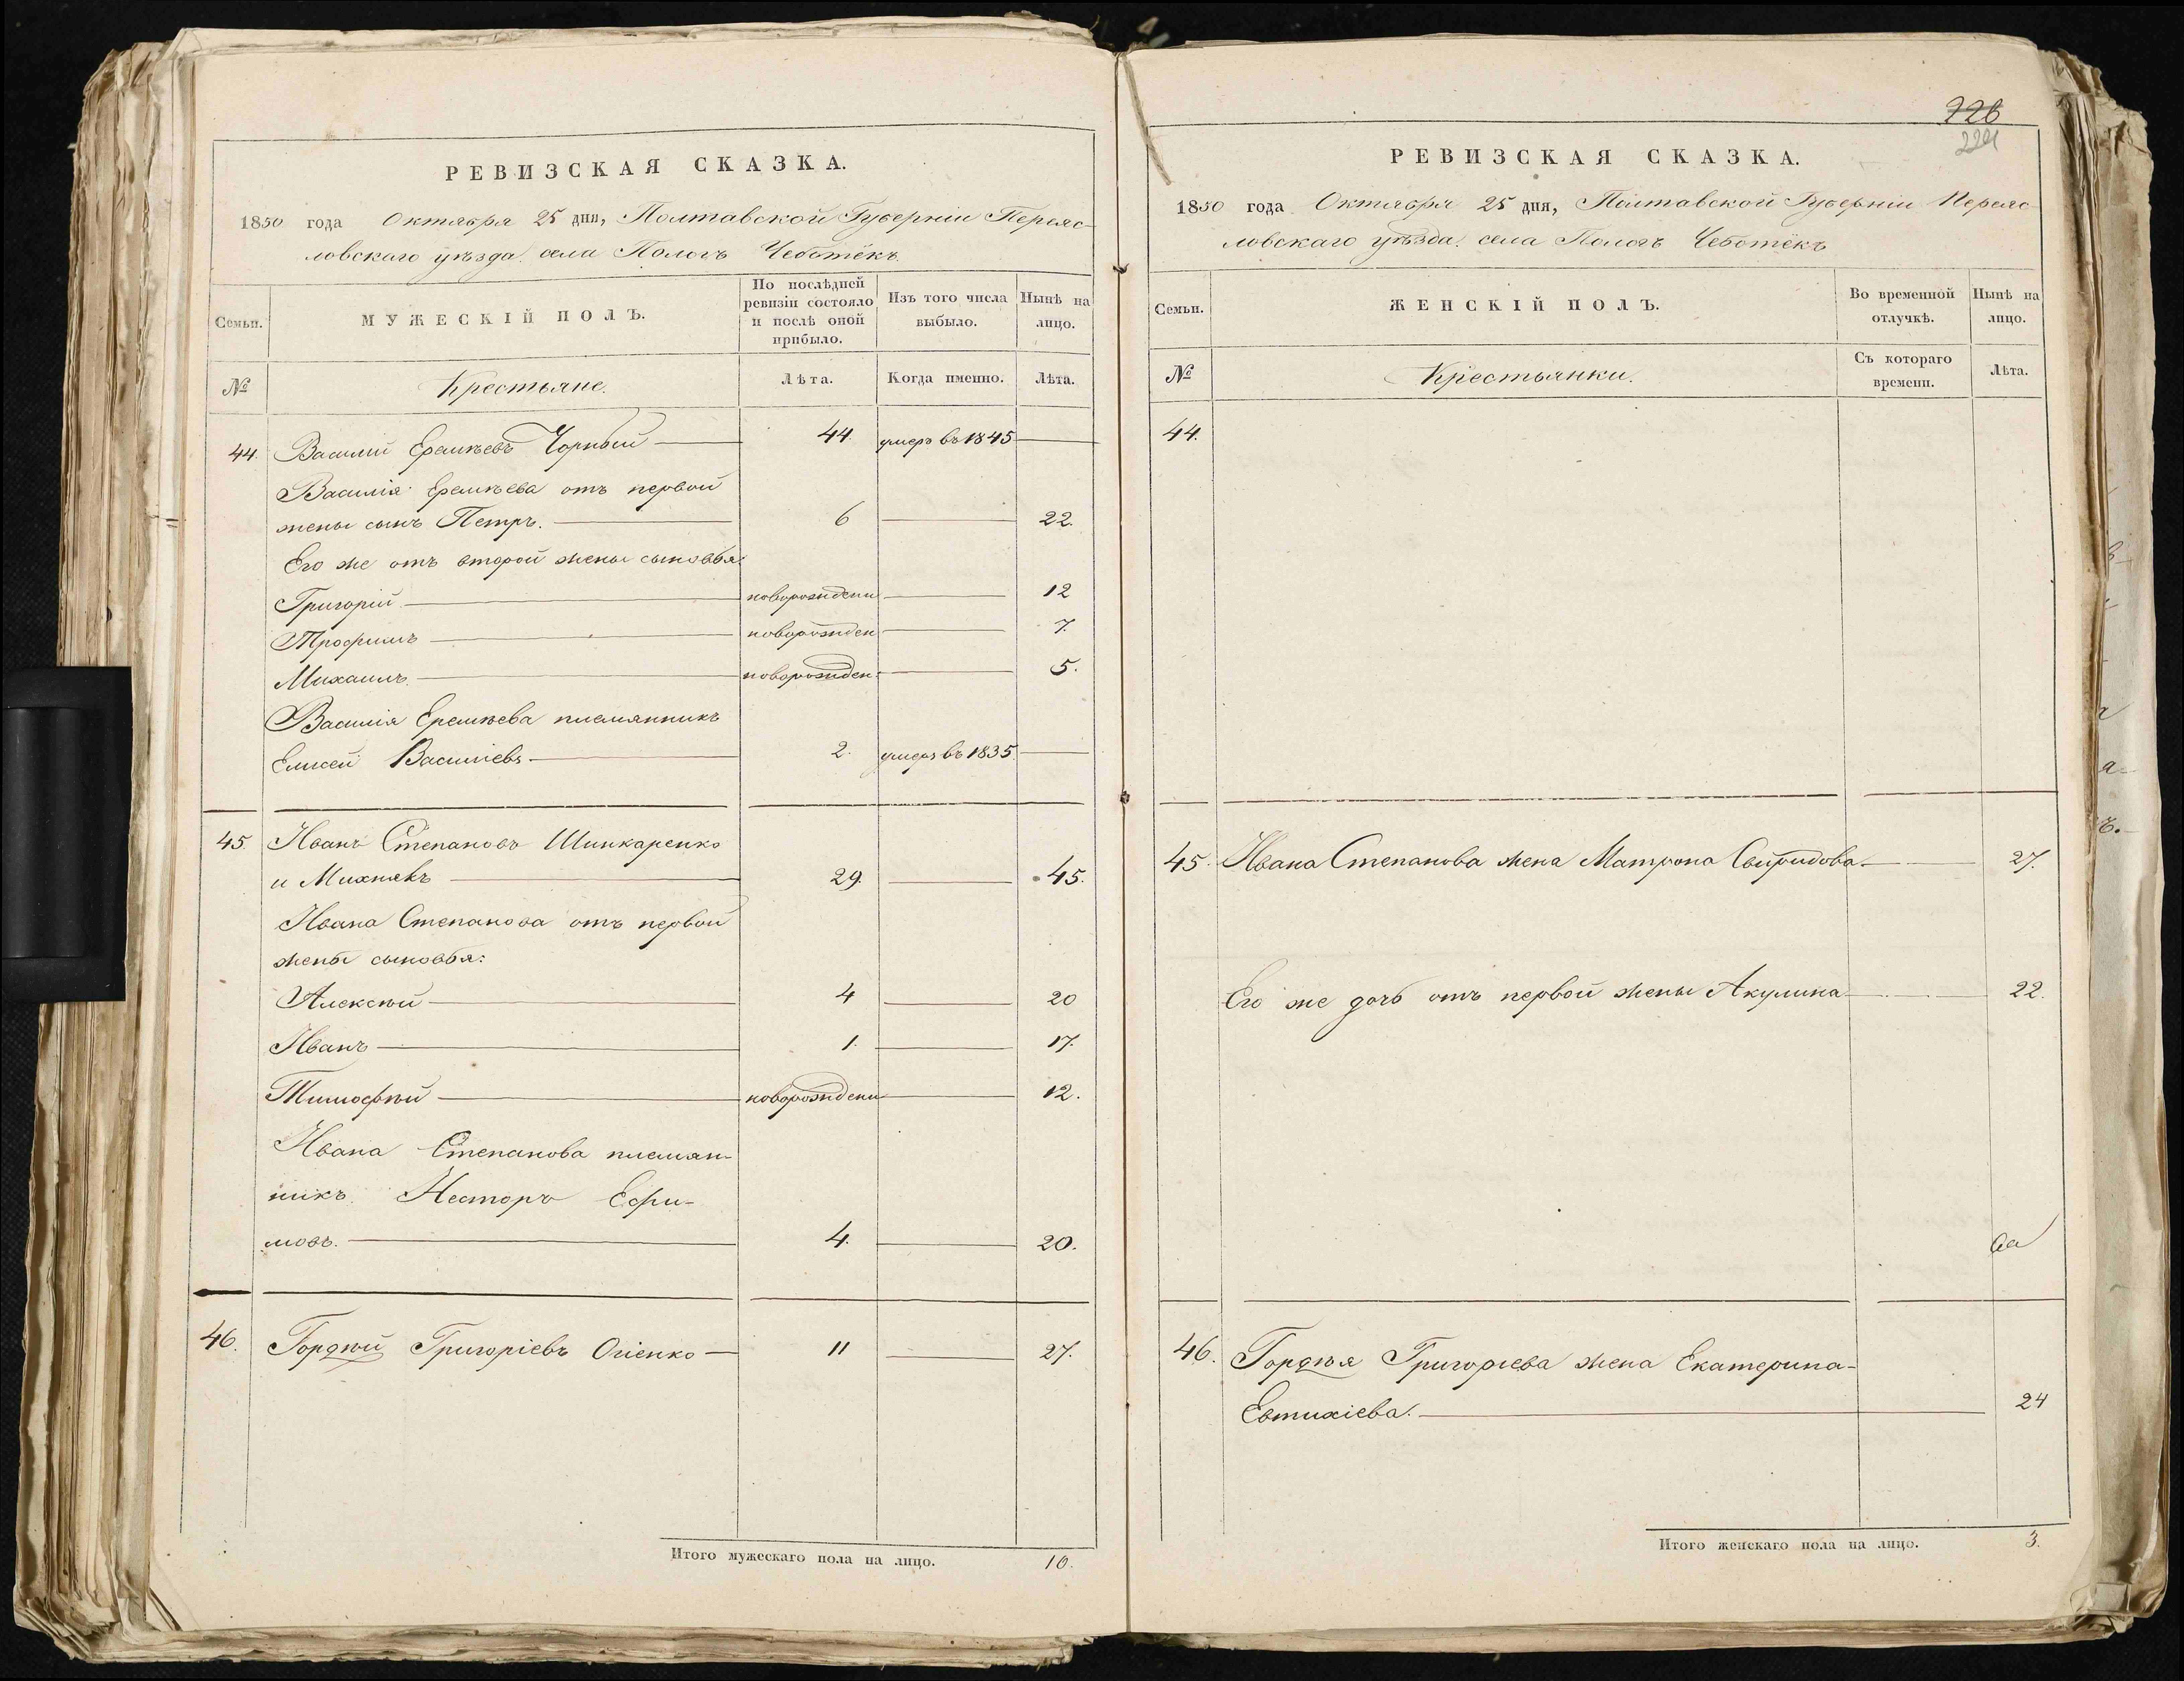 РЕВИЗСКАЯ СКАЗКА.
1850 года Октября 25 дня, Полтавской Губерніи Переяс-
ловскаго уѣзда. села Пологъ Чеботёкъ.
Семьи.
МУЖЕСКІЙ ПОЛЪ.
По послѣдней ревизіи состояло и послѣ оной прибыло.
Изъ того числа выбыло.
Нынѣ на лицо.
№
Крестьяне.
Лѣта.
Когда именно.
Лѣта.
44. Василій Еремѣевъ Чорный 44. умеръ въ 1845
Василія Еремѣева отъ первой
жены сынъ Петръ. 6 22.
Его же отъ второй жены сыновья:
Григорій новорожденн 12
Трофимъ новорожден 7.
Михаилъ. новорожден. 5.
Василія Еремѣева племянникъ
Елисей Василіевъ 2. умеръ въ 1835.
45. Иванъ Степановъ Шинкаренко
и Михнякъ 29. 45.
Ивана Степанова отъ первой
жены сыновья:
Алексѣй 4 20
Иванъ 1. 17.
Тимофѣй новорожденн 12.
Ивана Степанова племян-
никъ Несторъ Ефи-
мовъ. 4. 20.
46. Гордѣй Григоріевъ Огіенко 11 27.
Итого мужескаго пола на лицо. 10.
726
РЕВИЗСКАЯ СКАЗКА.
1850 года Октября 25 дня, Полтавской Губерніи Переяс
ловскаго уѣзда. села Пологъ Чеботёкъ
Семьи.
ЖЕНСКІЙ ПОЛЪ.
Во временной отлучкѣ.
Нынѣ на лицо.
№
Крестьянки.
Съ котораго времени.
Лѣта.
44.
45. Ивана Степанова жена Матрона Свиридова 27.
Его же дочь отъ первой жены Акулина 22.
46. Гордѣя Григоріева жена Екатерина
Евтихіева. 24
Итого женскаго пола на лицо. 3.